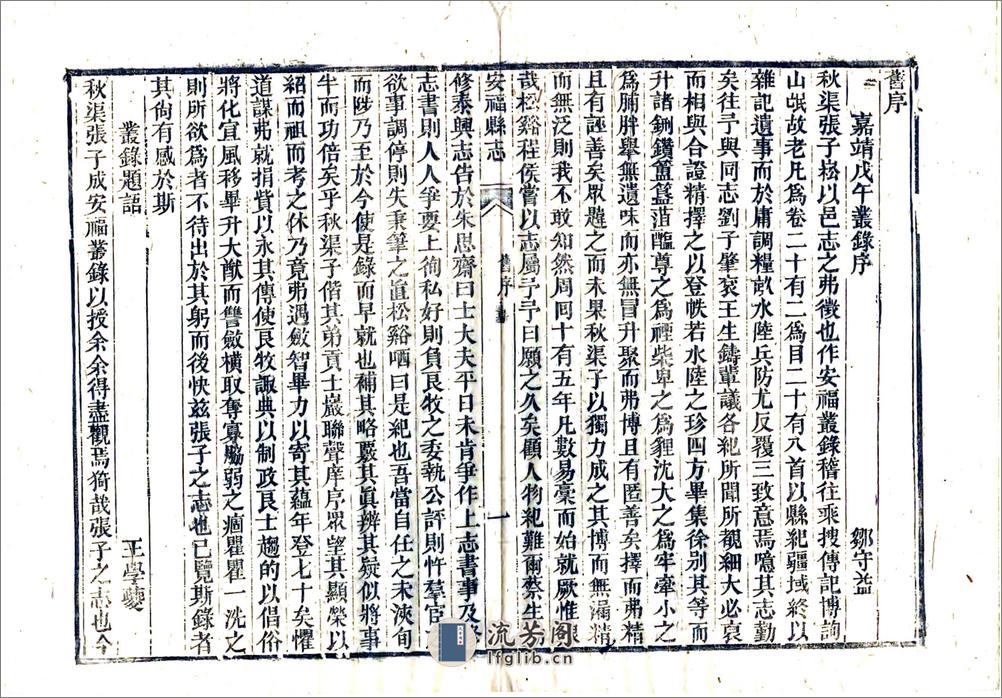 舊序
嘉靖戊午叢錄序 鄒守益
秋渠張子崧以邑志之弗徵也作安福叢錄稽往乘搜傳記博詢
山氓故老凡為卷二十有二為目二十有八首以縣紀疆域終以
雜記遺事而於庸調糧畝水陸兵防尤反覆三致意焉噫其志勤
矣往予與同志劉子肇袞王生鑄輩議各紀所聞所覩細大必裒
而相與合證精擇之以登帙若水陸之珍四方畢集徐別其等而
升諸鉶鑽簠簋葅醢尊之為禋柴卑之為貍沈大之為牢牽小之
為脯胖舉無遺味而亦無冒升聚而弗博且有匿善矣擇而弗精
且有誣善矣眾韙之而未果秋渠子以獨力成之其博而無漏精
而無泛則我不敢知然周囘十有五年凡數易稾而始就厥惟艱
哉松谿程侯嘗以志屬予予曰願之久矣顧人物紀難爾蔡生
安福縣志 舊序 一
修泰興志告於朱思齋曰士大夫平日未肯爭作上志書事及
志書則人人爭要上徇私好則負良牧之委執公評則忤羣宦
欲事調停則失秉筆之直松谿哂曰是紀也吾當自任之未浹旬
而陟乃至於今使是錄而早就也補其略覈其眞辨其疑似將事
半而功倍矣乎秋渠子偕其弟貢士巖聯聲庠序眾望其顯榮以
紹而祖而考之休乃竟弗遇斂智畢力以寄其蘊年登七十矣懼
道謀弗就捐貲以永其傳使良牧諏典以制政良士趨的以倡俗
將化宜風移畢升大猷而讐斂橫取奪寡脇弱之痼瞿瞿一洗之
則所欲為者不待出於其躬而後快兹張子之志也已覽斯錄者
其尙有感於斯
叢錄題語 王學夔
秋渠張子成安福叢錄以授余余得盡觀焉猗哉張子之志也今
流芳阁
lfglib.cn